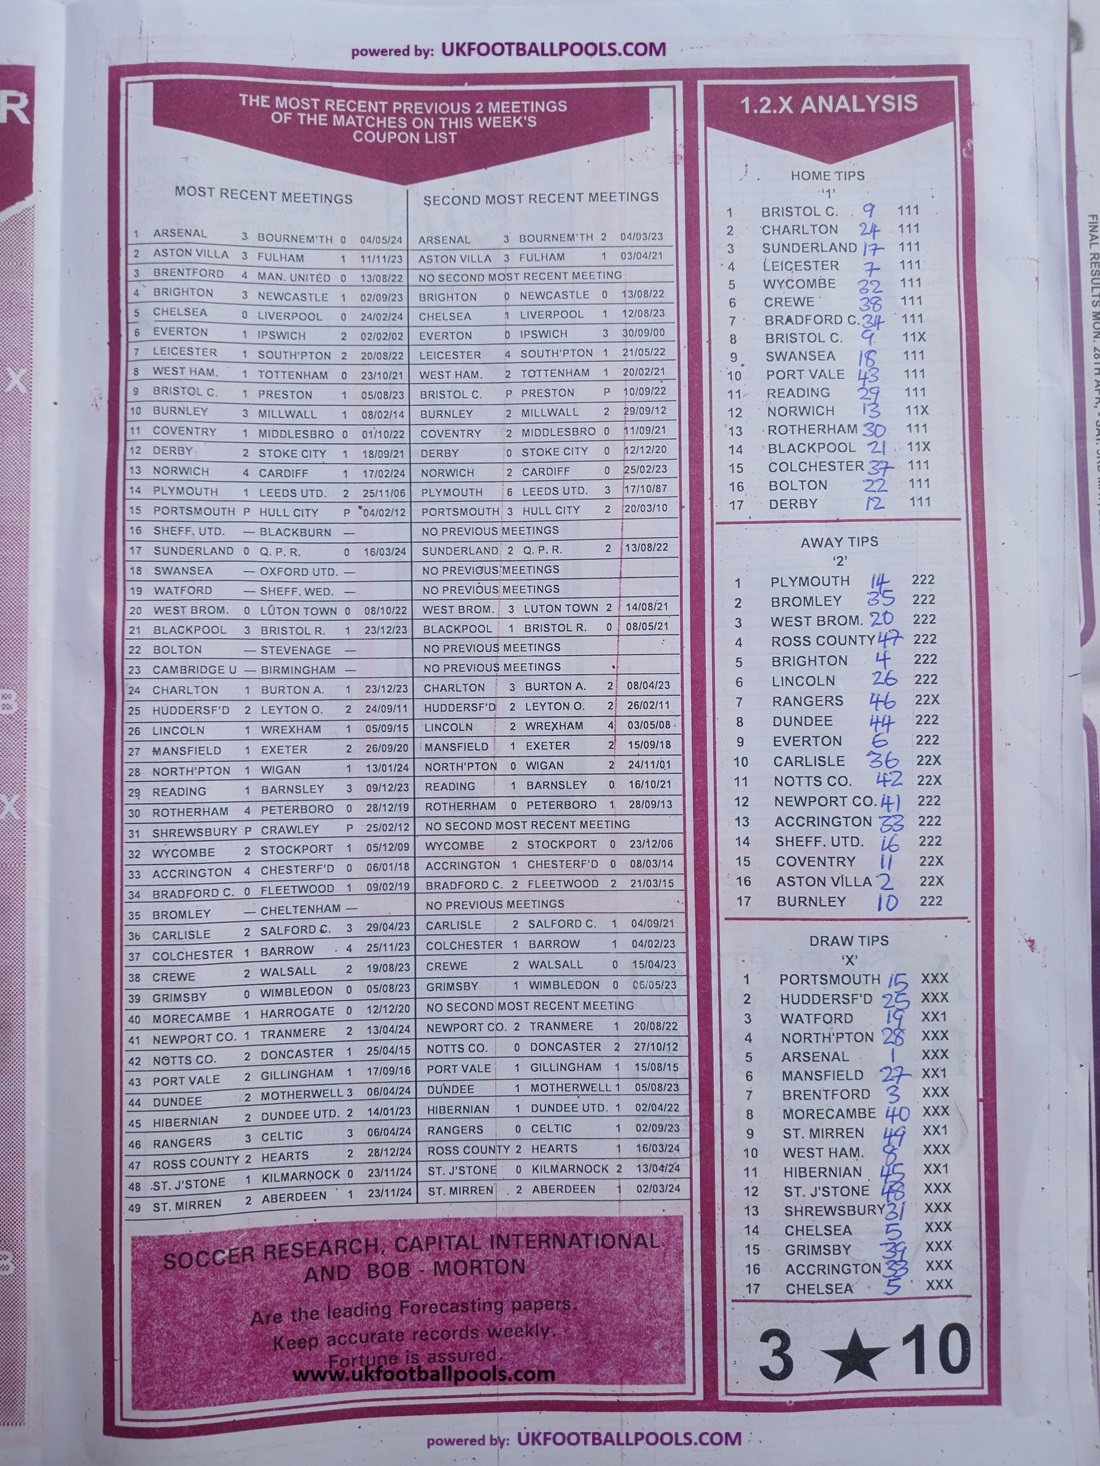 powered by: UKFOOTBALLPOOLS.COM
THE MOST RECENT PREVIOUS 2 MEETINGS
OF THE MATCHES ON THIS WEEK'S
COUPON LIST
MOST RECENT MEETINGS SECOND MOST RECENT MEETINGS
1 ARSENAL 3 BOURNEM'TH 0 04/05/24 ARSENAL 3 BOURNEM'TH 2 04/03/23
2 ASTON VILLA 3 FULHAM 1 11/11/23 ASTON VILLA 3 FULHAM 1 03/04/21
3 BRENTFORD 4 MAN. UNITED 0 13/08/22 NO SECOND MOST RECENT MEETING
4 BRIGHTON 3 NEWCASTLE 1 02/09/23 BRIGHTON 0 NEWCASTLE 0 13/08/22
5 CHELSEA 0 LIVERPOOL 0 24/02/24 CHELSEA 1 LIVERPOOL 1 12/08/23
6 EVERTON 1 IPSWICH 2 02/02/02 EVERTON 0 IPSWICH 3 30/09/00
7 LEICESTER 1 SOUTH'PTON 2 20/08/22 LEICESTER 4 SOUTH'PTON 1 21/05/22
8 WEST HAM. 1 TOTTENHAM 0 23/10/21 WEST HAM. 2 TOTTENHAM 1 20/02/21
9 BRISTOL C. 1 PRESTON 1 05/08/23 BRISTOL C. P PRESTON P 10/09/22
10 BURNLEY 3 MILLWALL 1 08/02/14 BURNLEY 2 MILLWALL 2 29/09/12
11 COVENTRY 1 MIDDLESBRO 0 01/10/22 COVENTRY 2 MIDDLESBRO 0 11/09/21
12 DERBY 2 STOKE CITY 1 18/09/21 DERBY 0 STOKE CITY 0 12/12/20
13 NORWICH 4 CARDIFF 1 17/02/24 NORWICH 2 CARDIFF 0 25/02/23
14 PLYMOUTH 1 LEEDS UTD. 2 25/11/06 PLYMOUTH 6 LEEDS UTD. 3 17/10/87
15 PORTSMOUTH P HULL CITY P 04/02/12 PORTSMOUTH 3 HULL CITY 2 20/03/10
16 SHEFF. UTD. — BLACKBURN — NO PREVIOUS MEETINGS
17 SUNDERLAND 0 Q. P. R. 0 16/03/24 SUNDERLAND 2 Q. P. R. 2 13/08/22
18 SWANSEA — OXFORD UTD. — NO PREVIOUS MEETINGS
19 WATFORD — SHEFF. WED. — NO PREVIOUS MEETINGS
20 WEST BROM. 0 LUTON TOWN 0 08/10/22 WEST BROM. 3 LUTON TOWN 2 14/08/21
21 BLACKPOOL 3 BRISTOL R. 1 23/12/23 BLACKPOOL 1 BRISTOL R. 0 08/05/21
22 BOLTON — STEVENAGE — NO PREVIOUS MEETINGS
23 CAMBRIDGE U — BIRMINGHAM — NO PREVIOUS MEETINGS
24 CHARLTON 1 BURTON A. 1 23/12/23 CHARLTON 3 BURTON A. 2 08/04/23
25 HUDDERSF'D 2 LEYTON O. 2 24/09/11 HUDDERSF'D 2 LEYTON O. 2 26/02/11
26 LINCOLN 1 WREXHAM 1 05/09/15 LINCOLN 2 WREXHAM 4 03/05/08
27 MANSFIELD 1 EXETER 2 26/09/20 MANSFIELD 1 EXETER 2 15/09/18
28 NORTH'PTON 1 WIGAN 1 13/01/24 NORTH'PTON 0 WIGAN 2 24/11/01
29 READING 1 BARNSLEY 3 09/12/23 READING 1 BARNSLEY 0 16/10/21
30 ROTHERHAM 4 PETERBORO 0 28/12/19 ROTHERHAM 0 PETERBORO 1 28/09/13
31 SHREWSBURY P CRAWLEY P 25/02/12 NO SECOND MOST RECENT MEETING
32 WYCOMBE 2 STOCKPORT 1 05/12/09 WYCOMBE 2 STOCKPORT 0 23/12/06
33 ACCRINGTON 4 CHESTERF'D 0 06/01/18 ACCRINGTON 1 CHESTERF'D 0 08/03/14
34 BRADFORD C. 0 FLEETWOOD 1 09/02/19 BRADFORD C. 2 FLEETWOOD 2 21/03/15
35 BROMLEY — CHELTENHAM — NO PREVIOUS MEETINGS
36 CARLISLE 2 SALFORD C. 3 29/04/23 CARLISLE 2 SALFORD C. 1 04/09/21
37 COLCHESTER 1 BARROW 4 25/11/23 COLCHESTER 1 BARROW 1 04/02/23
38 CREWE 2 WALSALL 2 19/08/23 CREWE 2 WALSALL 0 15/04/23
39 GRIMSBY 0 WIMBLEDON 0 05/08/23 GRIMSBY 1 WIMBLEDON 0 06/05/23
40 MORECAMBE 1 HARROGATE 0 12/12/20 NO SECOND MOST RECENT MEETING
41 NEWPORT CO. 1 TRANMERE 2 13/04/24 NEWPORT CO. 2 TRANMERE 1 20/08/22
42 NOTTS CO. 2 DONCASTER 1 25/04/15 NOTTS CO. 0 DONCASTER 2 27/10/12
43 PORT VALE 2 GILLINGHAM 1 17/09/16 PORT VALE 1 GILLINGHAM 1 15/08/15
44 DUNDEE 2 MOTHERWELL 3 06/04/24 DUNDEE 1 MOTHERWELL 1 05/08/23
45 HIBERNIAN 2 DUNDEE UTD. 2 14/01/23 HIBERNIAN 1 DUNDEE UTD. 1 02/04/22
46 RANGERS 3 CELTIC 3 06/04/24 RANGERS 0 CELTIC 1 02/09/23
47 ROSS COUNTY 2 HEARTS 2 28/12/24 ROSS COUNTY 2 HEARTS 1 16/03/24
48 ST. J'STONE 1 KILMARNOCK 0 23/11/24 ST. J'STONE 0 KILMARNOCK 2 13/04/24
49 ST. MIRREN 2 ABERDEEN 1 23/11/24 ST. MIRREN 2 ABERDEEN 1 02/03/24
SOCCER RESEARCH, CAPITAL INTERNATIONAL
AND BOB - MORTON
Are the leading Forecasting papers.
Keep accurate records weekly.
Fortune is assured.
www.ukfootballpools.com
1.2.X ANALYSIS
HOME TIPS
'1'
1 BRISTOL C. 9 111
2 CHARLTON 24 111
3 SUNDERLAND 17 111
4 LEICESTER 7 111
5 WYCOMBE 32 111
6 CREWE 38 111
7 BRADFORD C. 34 111
8 BRISTOL C. 9 11X
9 SWANSEA 18 111
10 PORT VALE 43 111
11 READING 29 111
12 NORWICH 13 11X
13 ROTHERHAM 30 111
14 BLACKPOOL 21 11X
15 COLCHESTER 37 111
16 BOLTON 22 111
17 DERBY 12 111
AWAY TIPS
'2'
1 PLYMOUTH 14 222
2 BROMLEY 35 222
3 WEST BROM. 20 222
4 ROSS COUNTY 47 222
5 BRIGHTON 4 222
6 LINCOLN 26 222
7 RANGERS 46 22X
8 DUNDEE 44 222
9 EVERTON 6 222
10 CARLISLE 36 22X
11 NOTTS CO. 42 22X
12 NEWPORT CO. 41 222
13 ACCRINGTON 33 222
14 SHEFF. UTD. 16 222
15 COVENTRY 11 22X
16 ASTON VILLA 2 22X
17 BURNLEY 10 222
DRAW TIPS
'X'
1 PORTSMOUTH 15 XXX
2 HUDDERSF'D 25 XXX
3 WATFORD 19 XX1
4 NORTH'PTON 28 XXX
5 ARSENAL 1 XXX
6 MANSFIELD 27 XX1
7 BRENTFORD 3 XXX
8 MORECAMBE 40 XXX
9 ST. MIRREN 49 XX1
10 WEST HAM. 8 XXX
11 HIBERNIAN 45 XX1
12 ST. J'STONE 48 XXX
13 SHREWSBURY 31 XXX
14 CHELSEA 5 XXX
15 GRIMSBY 39 XXX
16 ACCRINGTON 33 XXX
17 CHELSEA 5 XXX
3 ★ 10
powered by: UKFOOTBALLPOOLS.COM
R
X
X